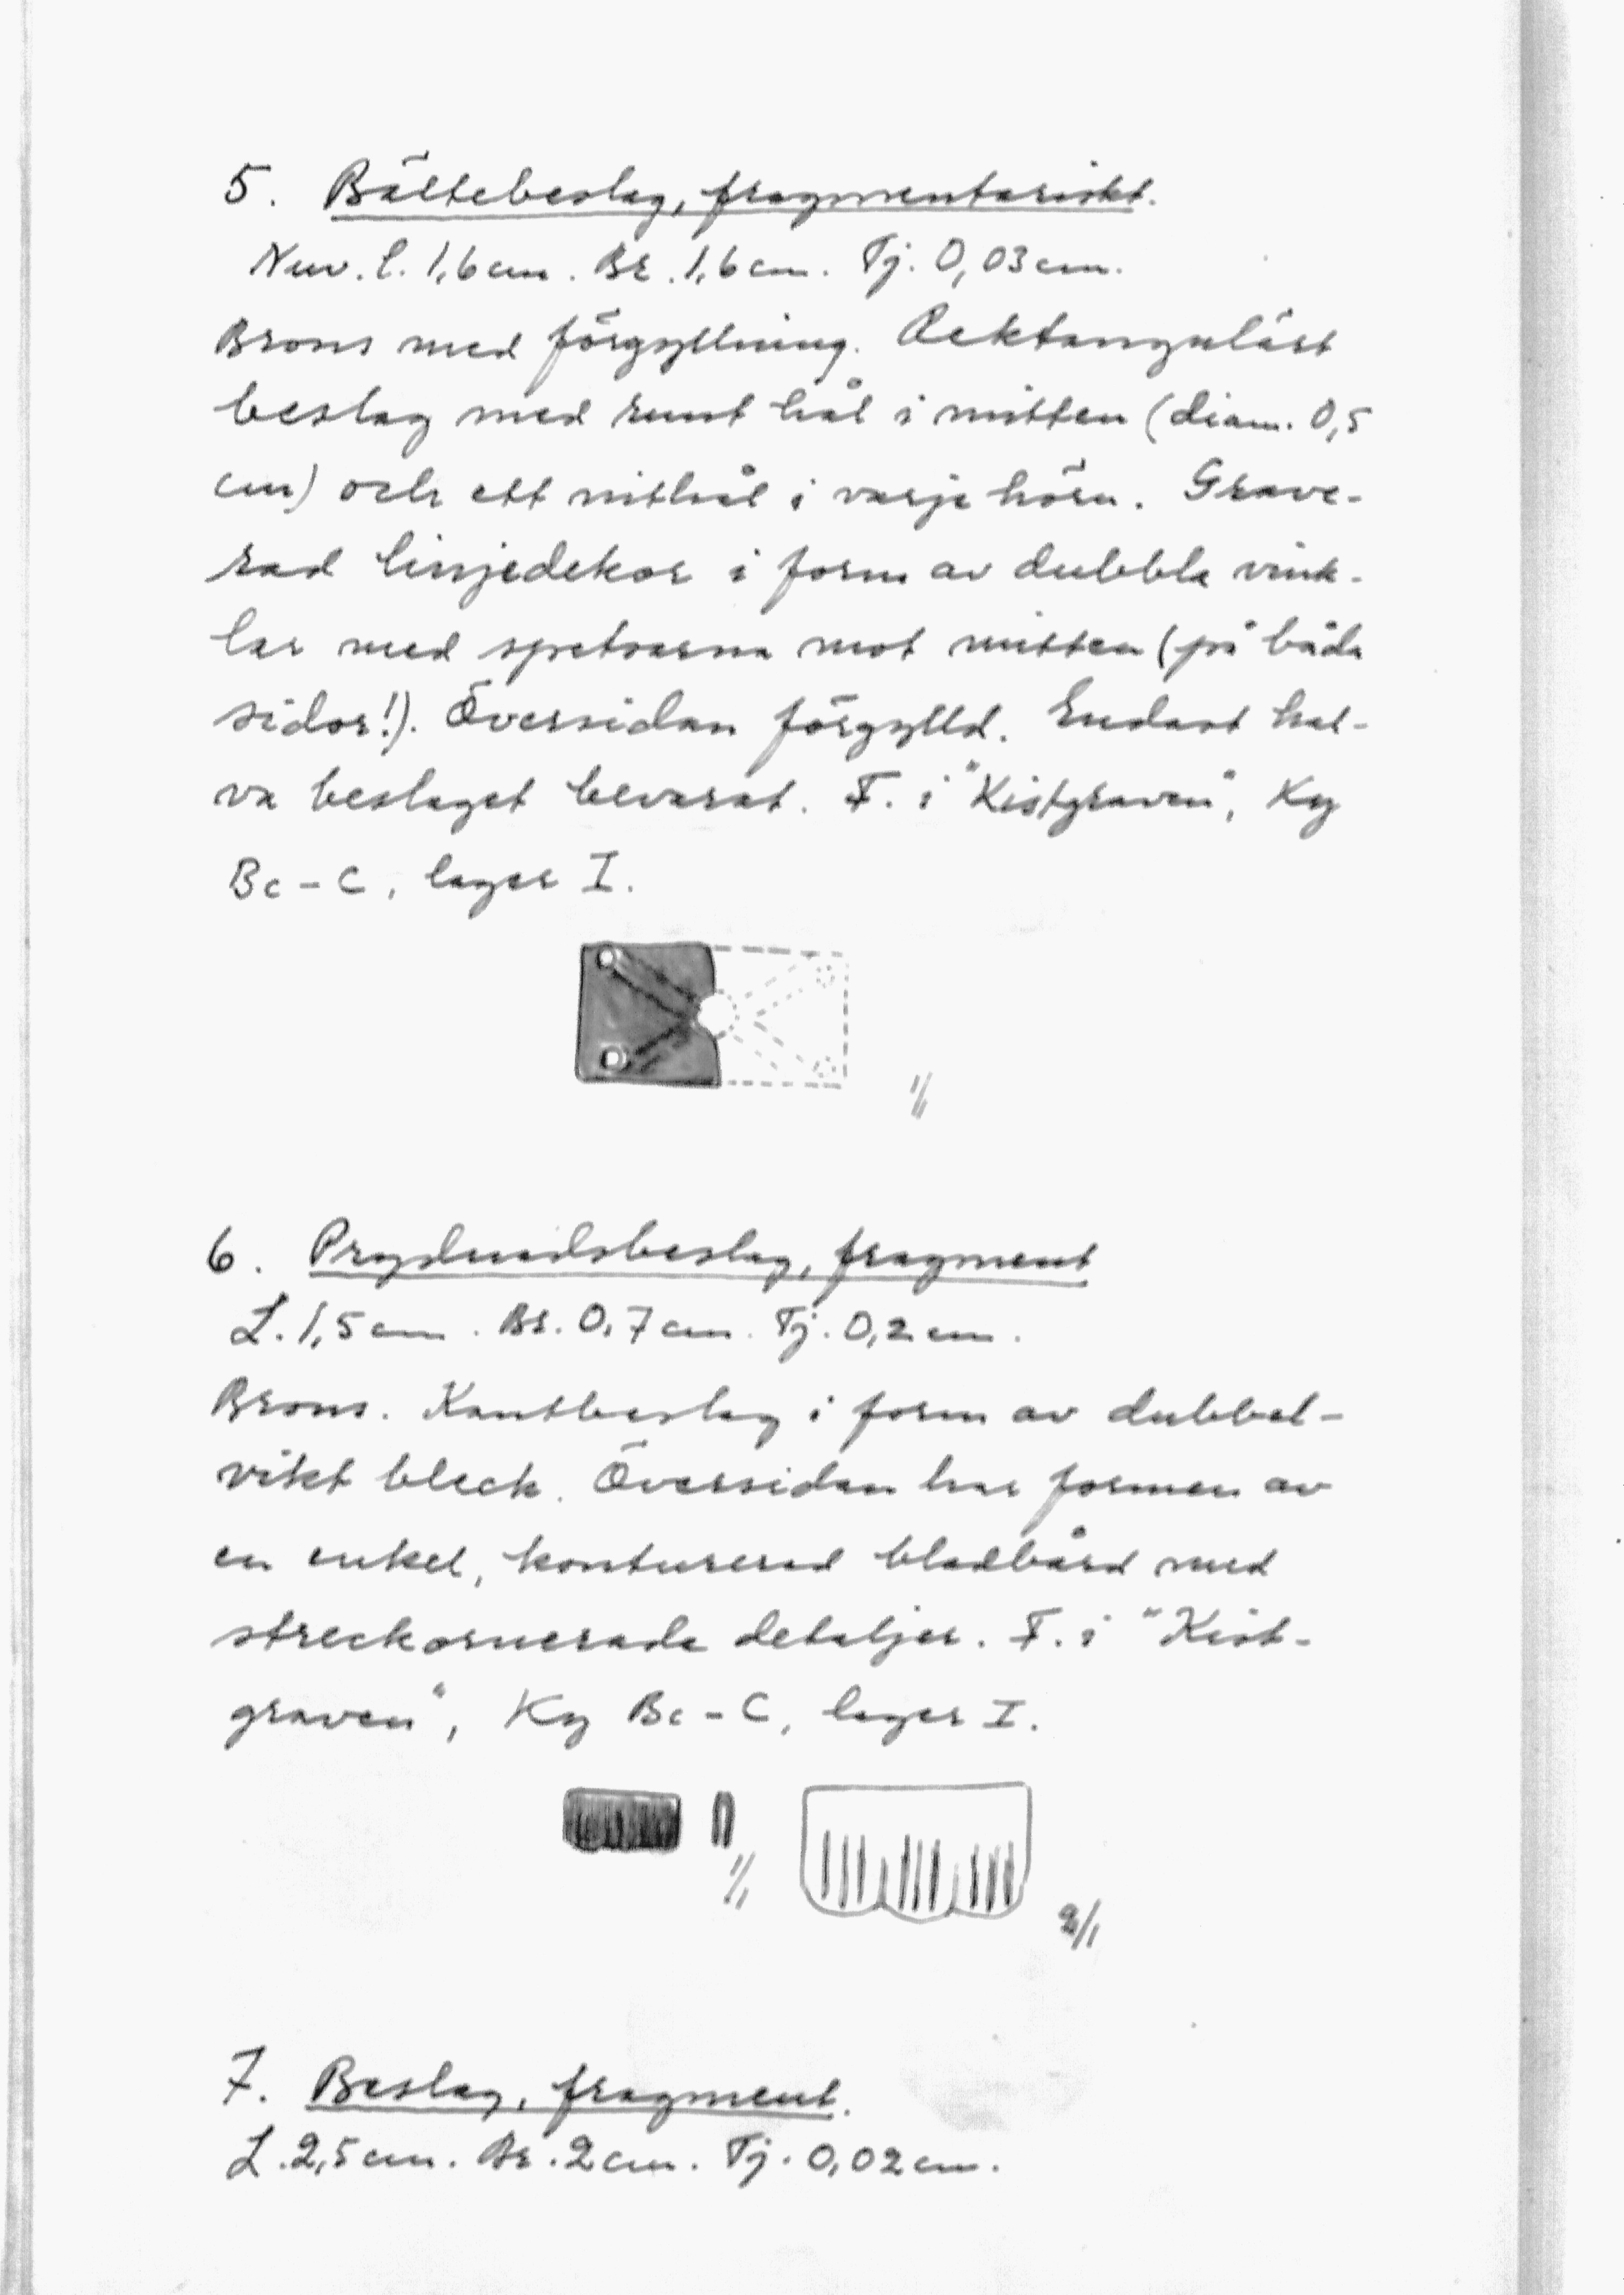 5. Bältebeslag, fragmentariskt.
Nuv. l. 1,6 cm. Br. 1,6 cm. Tj. 0,03 cm.
Brons med förgyllning. Rektangulärt
beslag med runt hål i mitten (diam. 0,5
cm) och ett nithål i varje hörn. Grave-
rad linjedekor i form av dubbla vink-
lar med spetsarna mot mitten (på båda
sidor!). Översidan förgylld. Endast hal-
va beslaget bevarat. F. i "Kistgraven", Kg
Bc - C, lager I.
1/1
6. Prydnadsbeslag, fragment
L. 1,5 cm. Br. 0,7 cm. Tj. 0,2 cm.
Brons. Kantbeslag i form av dubbel-
vikt bleck. Översidan har formen av
en enkel, konturerad bladbård med
streckornerade detaljer. F. i "Kist-
graven", Kg Bc - C, lager I.
1/1
2/1
7. Beslag, fragment.
L. 2,5 cm. Br. 2 cm. Tj. 0,02 cm.